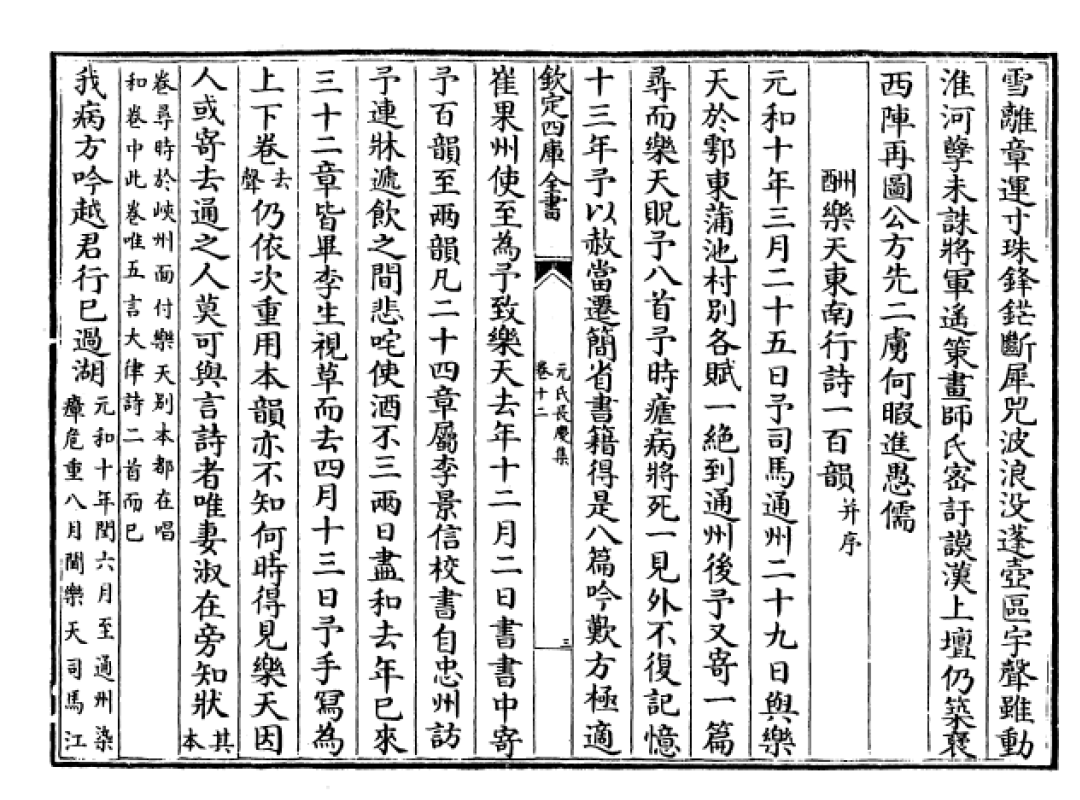 雪離章運寸珠鋒鋩斷犀兕波浪没蓬壺區宇聲雖動
淮河孽未誅將軍遙策畫師氏密訏謨漢上壇仍築襃
西陣再圖公方先二虜何暇進愚儒
酬樂天東南行詩一百韻并序
元和十年三月二十五日予司馬通州二十九日與樂
天於鄠東蒲池村别各賦一絶到通州後予又寄一篇
尋而樂天貺予八首予時瘧病將死一見外不復記憶
十三年予以赦當遷簡省書籍得是八篇吟歎方極適
欽定四庫全書
元氏長慶集
卷十二
三
崔果州使至為予致樂天去年十二月二日書書中寄
予百韻至兩韻凡二十四章屬李景信校書自忠州訪
予連牀遞飲之間悲咤使酒不三兩日盡和去年已來
三十二章皆畢李生視草而去四月十三日予手寫為
上下卷去聲仍依次重用本韻亦不知何時得見樂天因
人或寄去通之人莫可與言詩者唯妻淑在旁知狀其本
卷尋時於峽州面付樂天别本都在唱
和卷中此卷唯五言大律詩二首而已
我病方吟越君行已過湖元和十年閏六月至通州染
瘴危重八月聞樂天司馬江